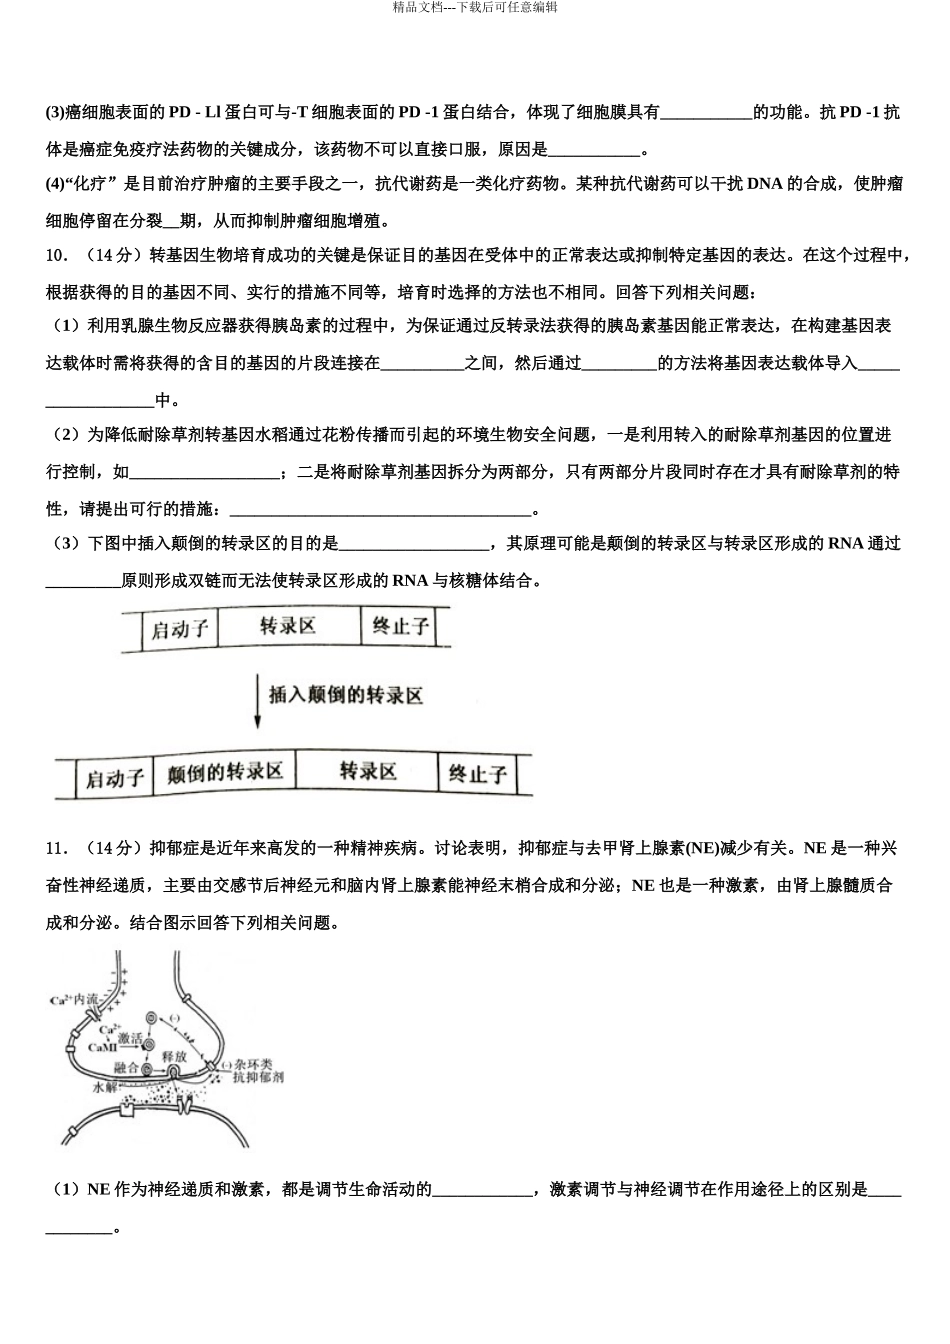 精品文档---下载后可任意编辑
(3)癌细胞表面的 PD - Ll 蛋白可与-T 细胞表面的 PD -1 蛋白结合，体现了细胞膜具有___________的功能。抗 PD -1 抗
体是癌症免疫疗法药物的关键成分，该药物不可以直接口服，原因是___________。
(4)“化疗”是目前治疗肿瘤的主要手段之一，抗代谢药是一类化疗药物。某种抗代谢药可以干扰 DNA 的合成，使肿瘤
细胞停留在分裂__期，从而抑制肿瘤细胞增殖。
10．（14 分）转基因生物培育成功的关键是保证目的基因在受体中的正常表达或抑制特定基因的表达。在这个过程中，
根据获得的目的基因不同、实行的措施不同等，培育时选择的方法也不相同。回答下列相关问题：
（1）利用乳腺生物反应器获得胰岛素的过程中，为保证通过反转录法获得的胰岛素基因能正常表达，在构建基因表
达载体时需将获得的含目的基因的片段连接在__________之间，然后通过_________的方法将基因表达载体导入_____
_____________中。
（2）为降低耐除草剂转基因水稻通过花粉传播而引起的环境生物安全问题，一是利用转入的耐除草剂基因的位置进
行控制，如__________________；二是将耐除草剂基因拆分为两部分，只有两部分片段同时存在才具有耐除草剂的特
性，请提出可行的措施：____________________________________。
（3）下图中插入颠倒的转录区的目的是__________________，其原理可能是颠倒的转录区与转录区形成的 RNA 通过
_________原则形成双链而无法使转录区形成的 RNA 与核糖体结合。
启动子 转录区 终止子
插入颠倒的转录区
启动子 颠倒的转录区 转录区 终止子
11．（14 分）抑郁症是近年来高发的一种精神疾病。讨论表明，抑郁症与去甲肾上腺素(NE)减少有关。NE 是一种兴
奋性神经递质，主要由交感节后神经元和脑内肾上腺素能神经末梢合成和分泌；NE 也是一种激素，由肾上腺髓质合
成和分泌。结合图示回答下列相关问题。
Ca²⁺内流
Ca²⁺
CaMI 激活
(-)
融合 释放
(-)杂环类
抗抑郁剂
水解
（1）NE 作为神经递质和激素，都是调节生命活动的____________，激素调节与神经调节在作用途径上的区别是____
________。